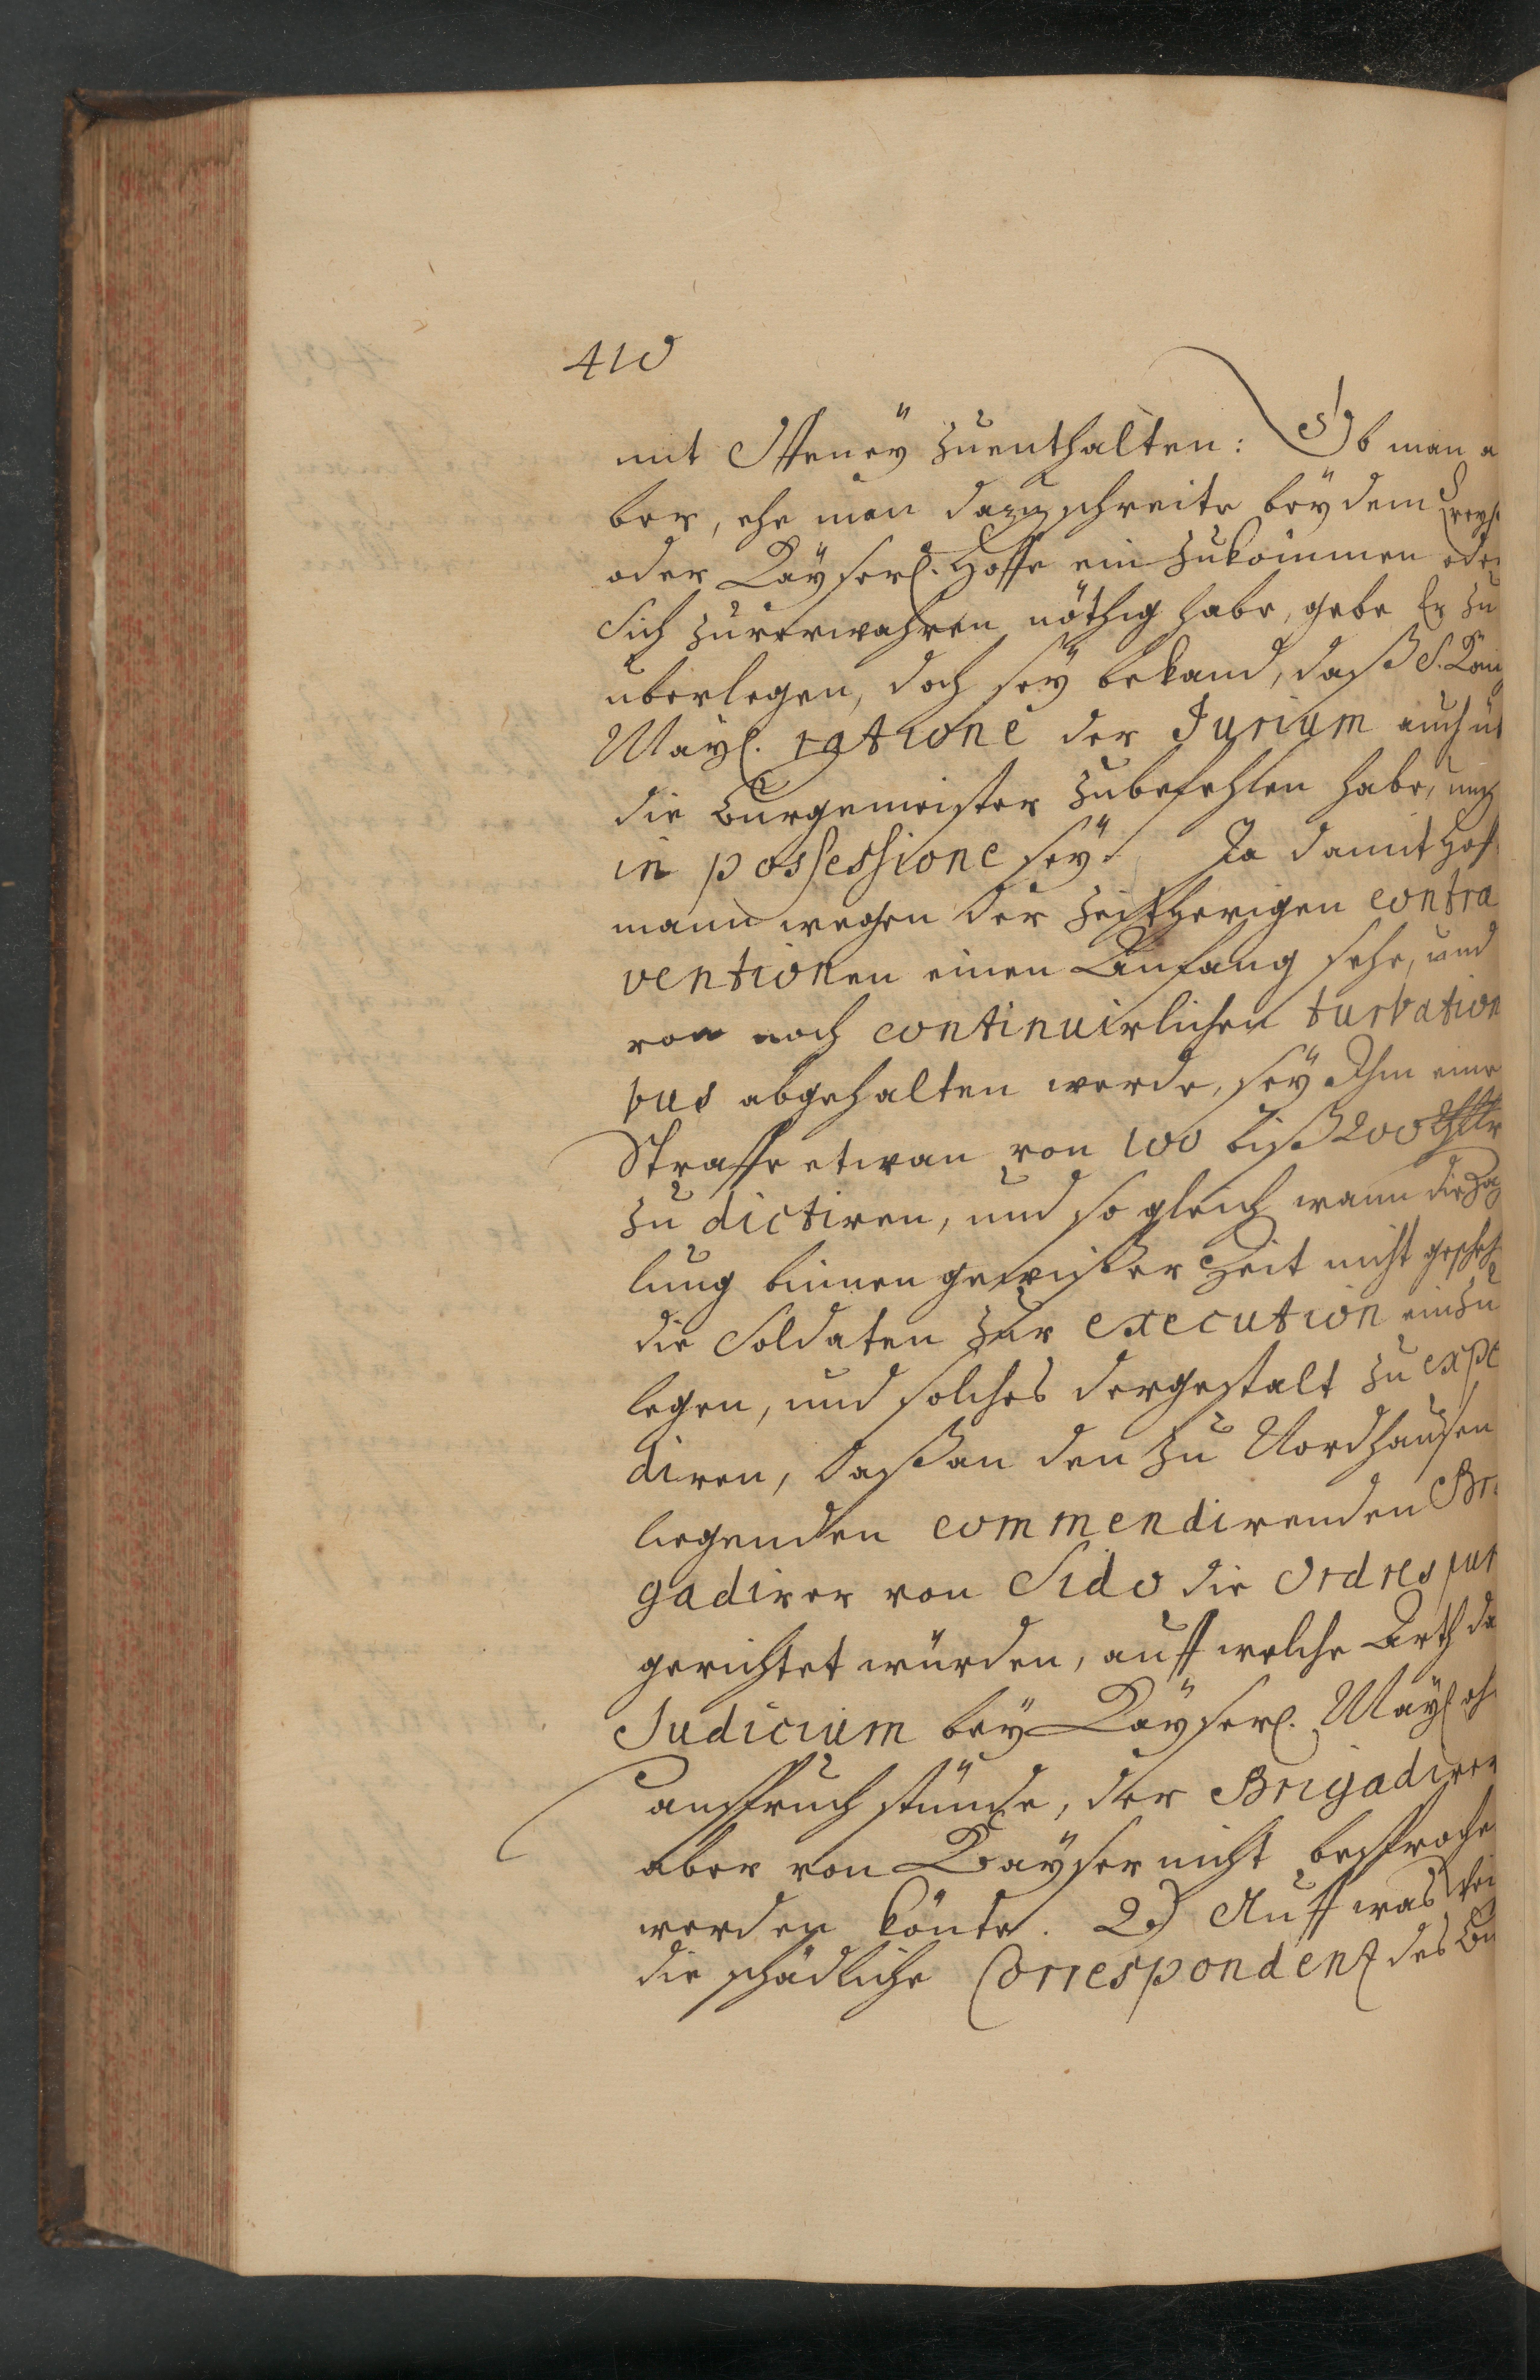 410
mit Offeney zuenthalten: Ob man a
ber, ehe man dazu schreite bey dem Creyß
oder Kayserl. Hoffe ein zukommen oder
Sich zuverwahren nöthig habe, gebe Er zu
überlegen, doch sey bekand, daß S. Kön
Mayl. ratione der Jurium auch üb
die Burgemeister zubefehlen habe, und
in possessione sey. Ja damit Hof
mann wegen der zeitherigen contra
ventionen einen Anfang sehe, und
von noch continuirlichen turbation
bus abgehalten werde, sey Ihm eine
Straffe etwan von 100 biß 200 Thlr
zu dictiren, und so gleich wann die Za
lung binnen gewißer Zeit nicht gescheh
die Soldaten zur execution einzu
legen, und solches dergestalt zu expe
diren, daß an den zu Nordhausen
liegenden commendirenden Bri
gadirer von Sido die Ordres
gerichtet würden, auff welche Arth da
Judicium bey Kayserl. Mayl. oh
anspruch stünde, der Brigadirer
aber von Kayser nicht besproche
werden könte. 2.) Auff was Wei
die schädliche Correspondenz des Bu